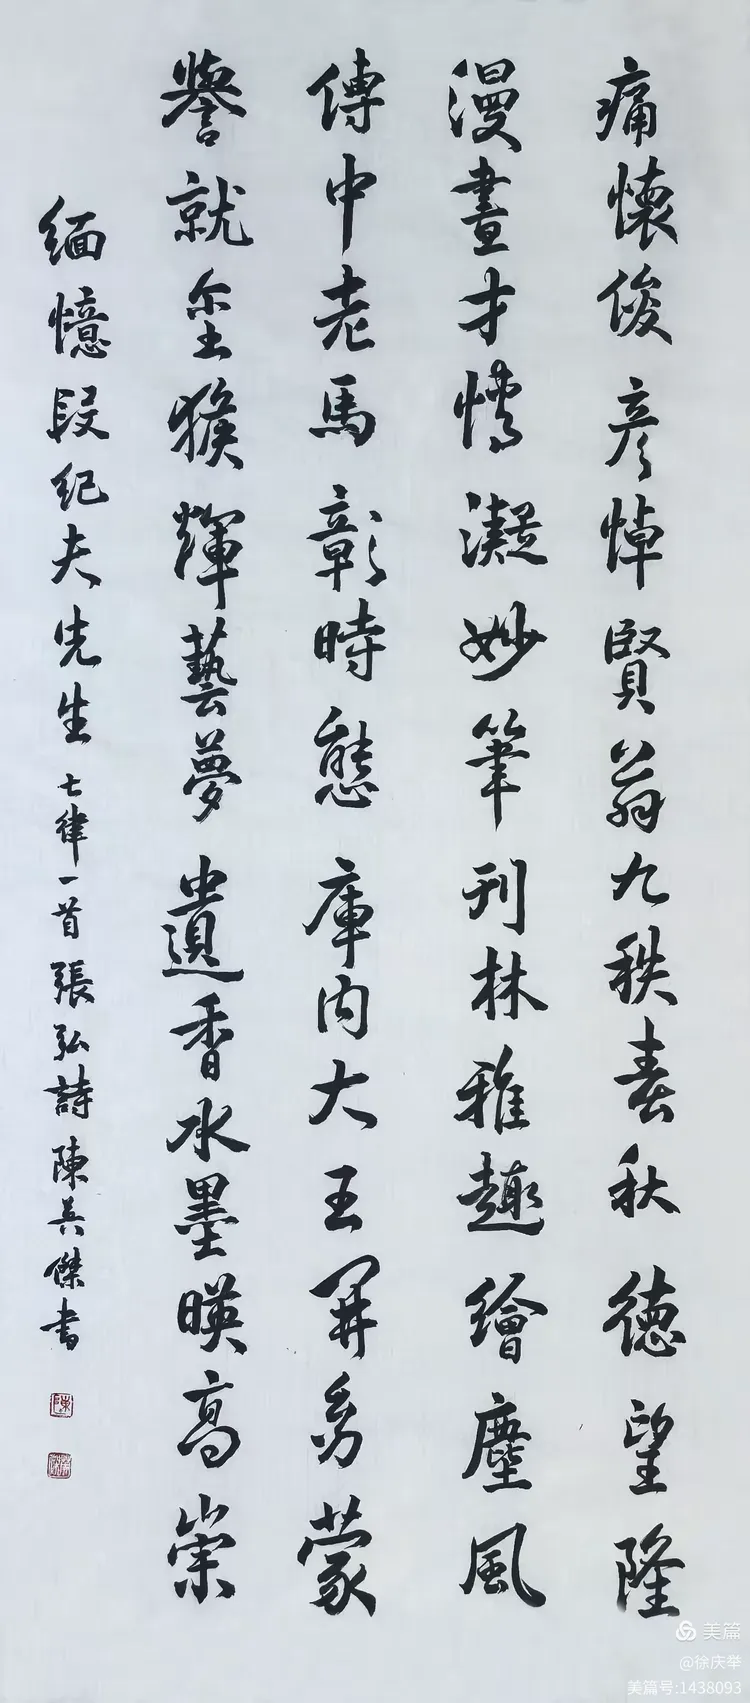 痛懷俊彥悼賢翁九秩春秋德望隆
漫畫才情凝妙筆刊林雅趣繪塵風
傳中老馬彰時態庫內大王開蒙
譽就金猴輝藝夢遺香水墨暎高崇
緬憶段紀夫先生七律一首張弘詩陳英傑書
美篇
@徐庆举
美篇号:1438093